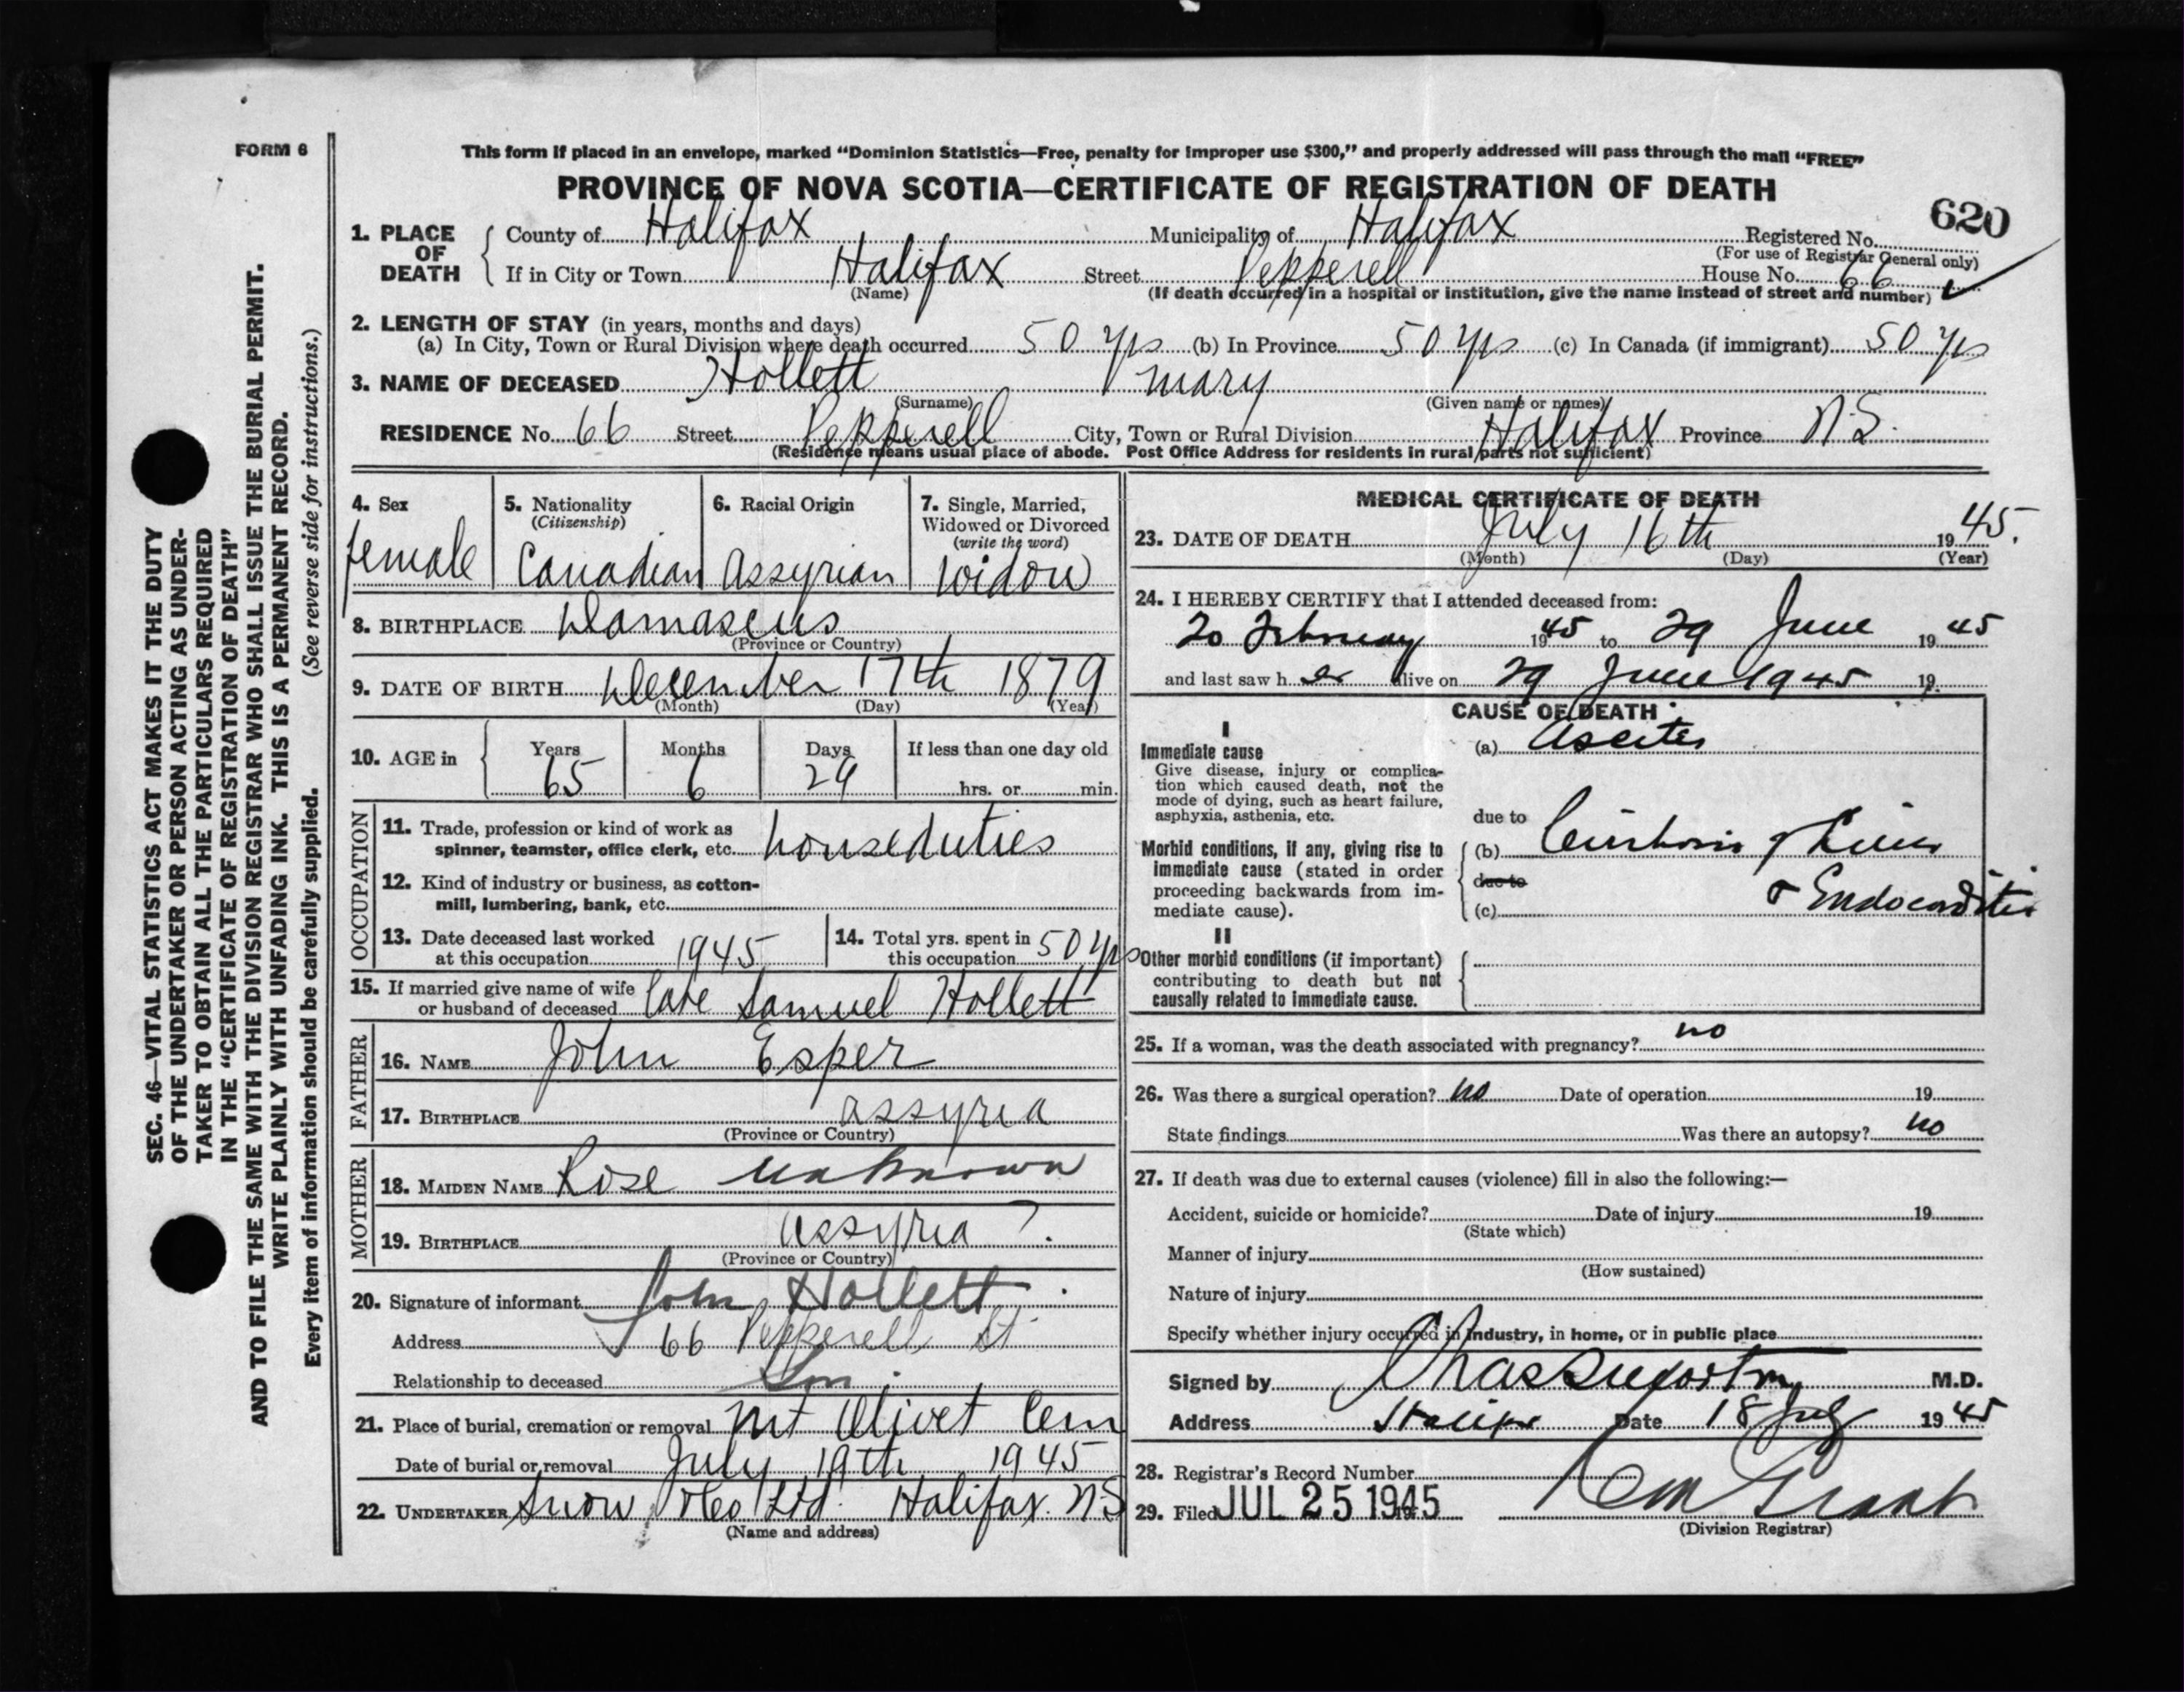 FORM 6
This form if placed in an envelope, marked "Dominion Statistics—Free, penalty for improper use $300," and properly addressed will pass through the mail "FREE"
PROVINCE OF NOVA SCOTIA—CERTIFICATE OF REGISTRATION OF DEATH
620
1. PLACE OF DEATH County of Halifax Municipality of Halifax Registered No.
(For use of Registrar General only)
If in City or Town Halifax Street Pepperell House No. 66 ✓
(Name) (If death occurred in a hospital or institution, give the name instead of street and number)
2. LENGTH OF STAY (in years, months and days)
(a) In City, Town or Rural Division where death occurred 50 yrs (b) In Province 50 yrs (c) In Canada (if immigrant) 50 yrs
3. NAME OF DECEASED Hollett Mary
(Surname) (Given name or names)
RESIDENCE No. 66 Street Pepperell City, Town or Rural Division Halifax Province N.S.
(Residence means usual place of abode. Post Office Address for residents in rural parts not sufficient)
4. Sex
female
5. Nationality
(Citizenship)
Canadian
6. Racial Origin
Assyrian
7. Single, Married,
Widowed or Divorced
(write the word)
Widow
8. BIRTHPLACE Damascus
(Province or Country)
9. DATE OF BIRTH December 17th 1879
(Month) (Day) (Year)
10. AGE in Years Months Days If less than one day old
65 6 29 hrs. or min.
OCCUPATION
11. Trade, profession or kind of work as
spinner, teamster, office clerk, etc. houseduties
12. Kind of industry or business, as cotton-
mill, lumbering, bank, etc.
13. Date deceased last worked
at this occupation 1945
14. Total yrs. spent in
this occupation 50 yrs
15. If married give name of wife
or husband of deceased late Samuel Hollett
FATHER
16. NAME John Esper
17. BIRTHPLACE Assyria
(Province or Country)
MOTHER
18. MAIDEN NAME Rose unknown
19. BIRTHPLACE Assyria ?.
(Province or Country)
20. Signature of informant John Hollett
Address 66 Pepperell St
Relationship to deceased Son
21. Place of burial, cremation or removal Mt Olivet Cem
Date of burial or removal July 19th 1945
22. UNDERTAKER Snow & Co Ltd. Halifax. NS
(Name and address)
MEDICAL CERTIFICATE OF DEATH
23. DATE OF DEATH July 16th 1945.
(Month) (Day) (Year)
24. I HEREBY CERTIFY that I attended deceased from:
20 February 1945 to 29 June 1945
and last saw her alive on 29 June 1945 19
CAUSE OF DEATH
I
Immediate cause
Give disease, injury or complica-
tion which caused death, not the
mode of dying, such as heart failure,
asphyxia, asthenia, etc.
(a) Ascites
due to
Morbid conditions, if any, giving rise to
immediate cause (stated in order
proceeding backwards from im-
mediate cause).
(b) Cirrhosis of Liver
due to
(c) & Endocarditis
II
Other morbid conditions (if important)
contributing to death but not
causally related to immediate cause.
25. If a woman, was the death associated with pregnancy? no
26. Was there a surgical operation? no Date of operation 19
State findings Was there an autopsy? no
27. If death was due to external causes (violence) fill in also the following:—
Accident, suicide or homicide? Date of injury 19
(State which)
Manner of injury
(How sustained)
Nature of injury
Specify whether injury occurred in industry, in home, or in public place
Signed by M.D.
Address Halifax Date 18 July 1945
28. Registrar's Record Number
29. Filed JUL 25 1945 19
(Division Registrar)
SEC. 46—VITAL STATISTICS ACT MAKES IT THE DUTY
OF THE UNDERTAKER OR PERSON ACTING AS UNDER-
TAKER TO OBTAIN ALL THE PARTICULARS REQUIRED
IN THE "CERTIFICATE OF REGISTRATION OF DEATH"
AND TO FILE THE SAME WITH THE DIVISION REGISTRAR WHO SHALL ISSUE THE BURIAL PERMIT.
WRITE PLAINLY WITH UNFADING INK. THIS IS A PERMANENT RECORD.
Every item of information should be carefully supplied. (See reverse side for instructions.)